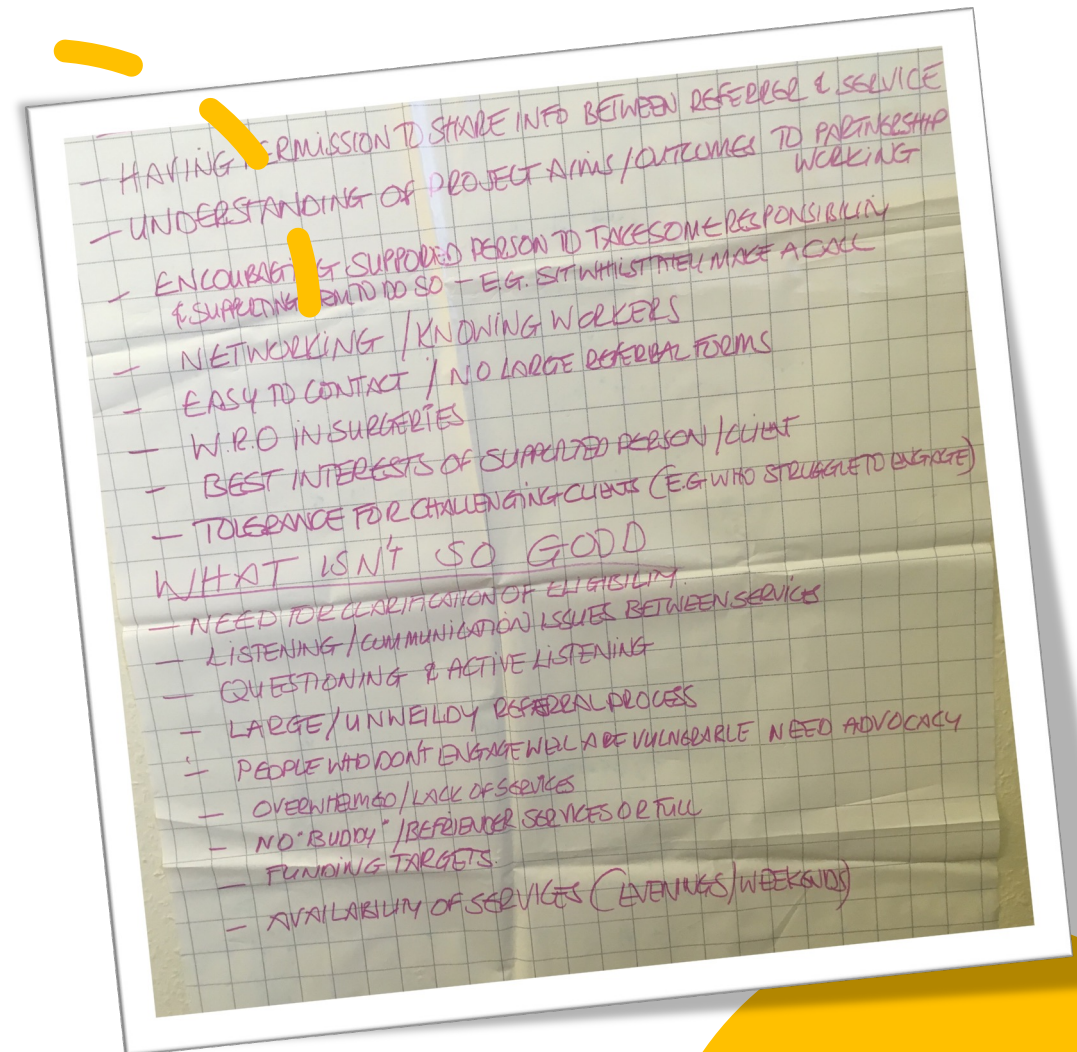 - HAVING PERMISSION TO SHARE INFO BETWEEN REFERRER & SERVICE
- UNDERSTANDING OF PROJECT AIMS/OUTCOMES TO PARTNERSHIP
WORKING
- ENCOURAGING SUPPORTED PERSON TO TAKE SOME RESPONSIBILITY
& SUPPORTING THEM TO DO SO - E.G. SIT WHILST THEY MAKE A CALL
- NETWORKING / KNOWING WORKERS
- EASY TO CONTACT / NO LARGE REFERRAL FORMS
- W.R.O IN SURGERIES
- BEST INTERESTS OF SUPPORTED PERSON / CLIENT
- TOLERANCE FOR CHALLENGING CLIENTS (E.G WHO STRUGGLE TO ENGAGE)
WHAT ISN'T SO GOOD
- NEED FOR CLARIFICATION OF ELIGIBILITY.
- LISTENING / COMMUNICATION ISSUES BETWEEN SERVICES
- QUESTIONING & ACTIVE LISTENING
- LARGE/UNWEILDY REFERRAL PROCESS
- PEOPLE WHO DON'T ENGAGE WELL ARE VULNERABLE NEED ADVOCACY
- OVERWHELMED / LACK OF SERVICES
- NO "BUDDY" / BEFRIENDER SERVICES OR FULL
- FUNDING TARGETS.
- AVAILABILITY OF SERVICES (EVENINGS/WEEKENDS)